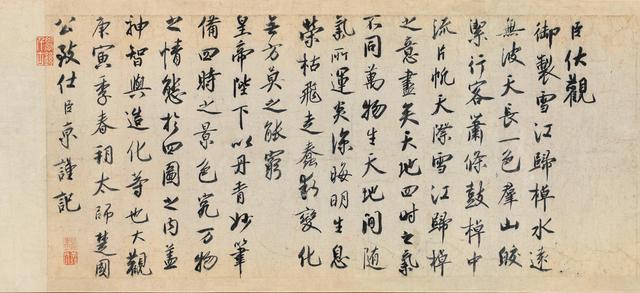 臣伏觀
御製雪江歸棹水遠
無波天長一色羣山皎
潔行客蕭條鼓棹中
流片帆天際雪江歸棹
之意盡矣天地四時之氣
不同萬物生天地間隨
氣所運炎涼晦明生息
榮枯飛走蠢動變化
无方莫之能窮
皇帝陛下以丹青妙筆
備四時之景色究万物
之情態於四圖之內蓋
神智與造化等也大觀
庚寅季春朔太師楚國
公致仕臣京謹記